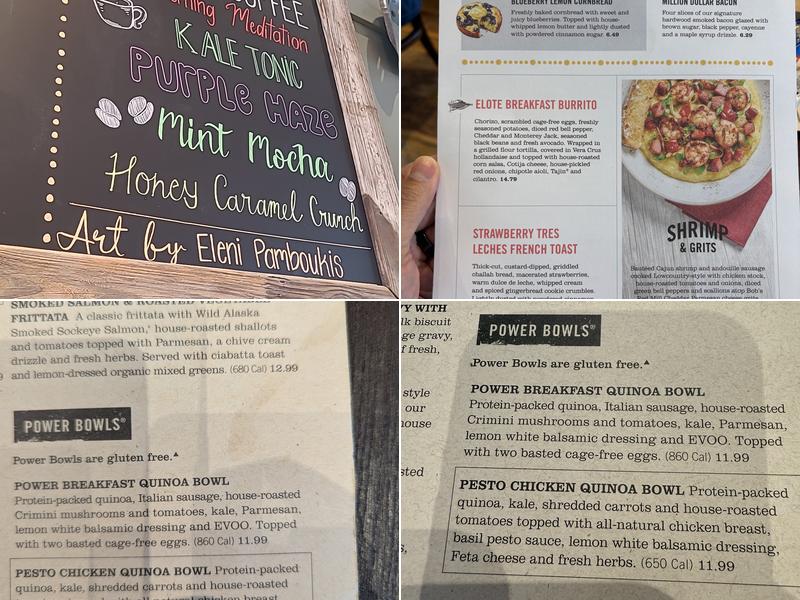 COFFEE
Morning Meditation
KALE TONIC
PURPLE HAZE
Mint Mocha
Honey Caramel Crunch
Art by Eleni Pamboukis
BLUEBERRY LEMON CORNBREAD
Freshly baked cornbread with sweet and
juicy blueberries. Topped with house-
whipped lemon butter and lightly dusted
with powdered cinnamon sugar. 6.49
MILLION DOLLAR BACON
Four slices of our signature
hardwood smoked bacon glazed with
brown sugar, black pepper, cayenne
and a maple syrup drizzle. 6.29
ELOTE BREAKFAST BURRITO
Chorizo, scrambled cage-free eggs, freshly
seasoned potatoes, diced red bell pepper,
Cheddar and Monterey Jack, seasoned
black beans and fresh avocado. Wrapped in
a grilled flour tortilla, covered in Vera Cruz
hollandaise and topped with house-roasted
corn salsa, Cotija cheese, house-pickled
red onions, chipotle aioli, Tajín® and
cilantro. 14.79
STRAWBERRY TRES
LECHES FRENCH TOAST
Thick-cut, custard-dipped, griddled
challah bread, macerated strawberries,
warm dulce de leche, whipped cream
and spiced gingerbread cookie crumbles.
Lightly dusted with powdered cinnamon
SHRIMP
& GRITS
Sauteed Cajun shrimp and andouille sausage
cooked Lowcountry-style with chicken stock,
house-roasted tomatoes and onions, diced
green bell peppers and scallions atop Bob's
Red Mill Cheddar Parmesan cheese grits
SMOKED SALMON & ROASTED VEGETABLE
FRITTATA A classic frittata with Wild Alaska
Smoked Sockeye Salmon,* house-roasted shallots
and tomatoes topped with Parmesan, a chive cream
drizzle and fresh herbs. Served with ciabatta toast
and lemon-dressed organic mixed greens. (680 Cal) 12.99
POWER BOWLS®
Power Bowls are gluten free.▲
POWER BREAKFAST QUINOA BOWL
Protein-packed quinoa, Italian sausage, house-roasted
Crimini mushrooms and tomatoes, kale, Parmesan,
lemon white balsamic dressing and EVOO. Topped
with two basted cage-free eggs. (860 Cal) 11.99
PESTO CHICKEN QUINOA BOWL Protein-packed
quinoa, kale, shredded carrots and house-roasted
Y WITH
lk biscuit
ge gravy,
f fresh,
style
our
house
sted
s,
POWER BOWLS®
Power Bowls are gluten free.▲
POWER BREAKFAST QUINOA BOWL
Protein-packed quinoa, Italian sausage, house-roasted
Crimini mushrooms and tomatoes, kale, Parmesan,
lemon white balsamic dressing and EVOO. Topped
with two basted cage-free eggs. (860 Cal) 11.99
PESTO CHICKEN QUINOA BOWL Protein-packed
quinoa, kale, shredded carrots and house-roasted
tomatoes topped with all-natural chicken breast,
basil pesto sauce, lemon white balsamic dressing,
Feta cheese and fresh herbs. (650 Cal) 11.99